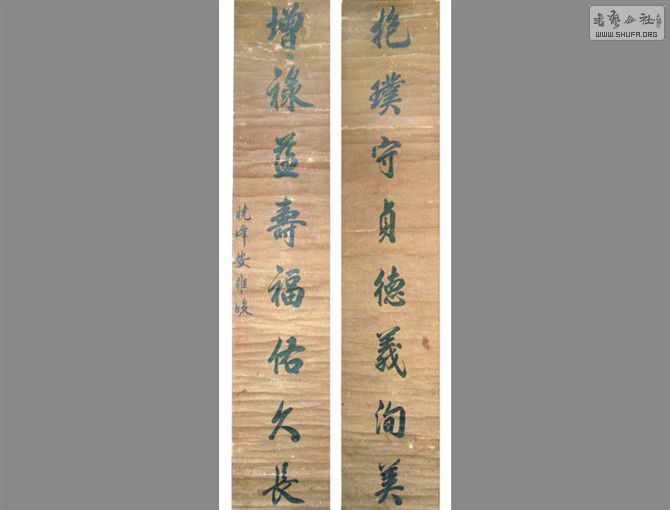 抱璞守贞德義洵美
增禄益壽福佑久長
晓峰安维峻
书艺公社
WWW.SHUFA.ORG